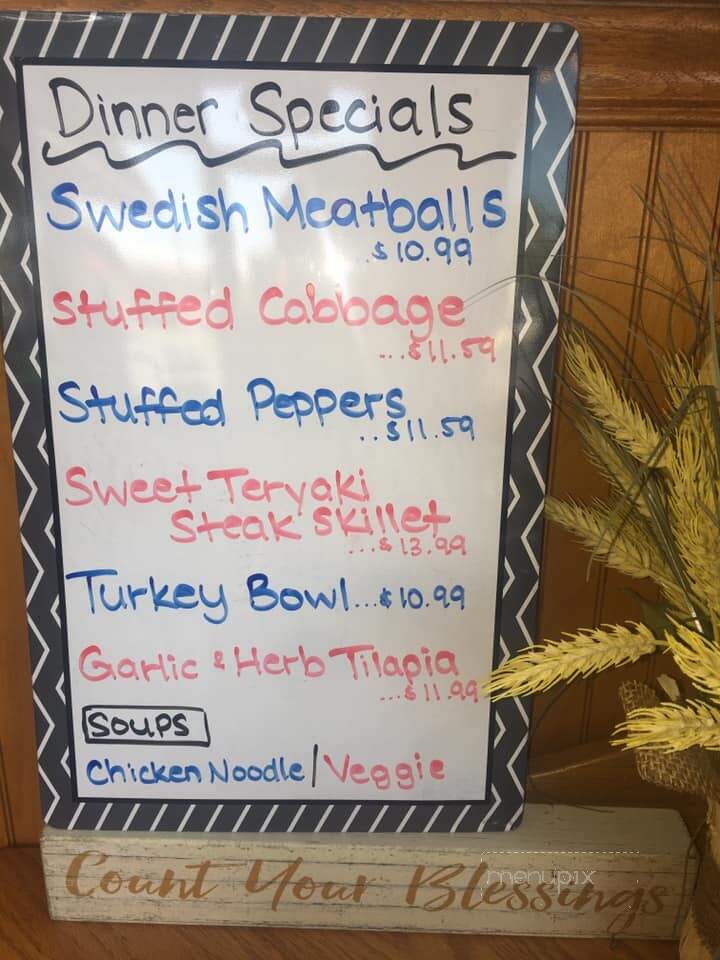 Dinner Specials
Swedish Meatballs
.$10.99
Stuffed Cabbage
...$11.59
Stuffed Peppers
..$11.59
Sweet Teryaki
Steak Skillet
...$13.99
Turkey Bowl...$10.99
Garlic & Herb Tilapia
...$11.99
Soups
Chicken Noodle/Veggie
Count Your Blessings
menupix